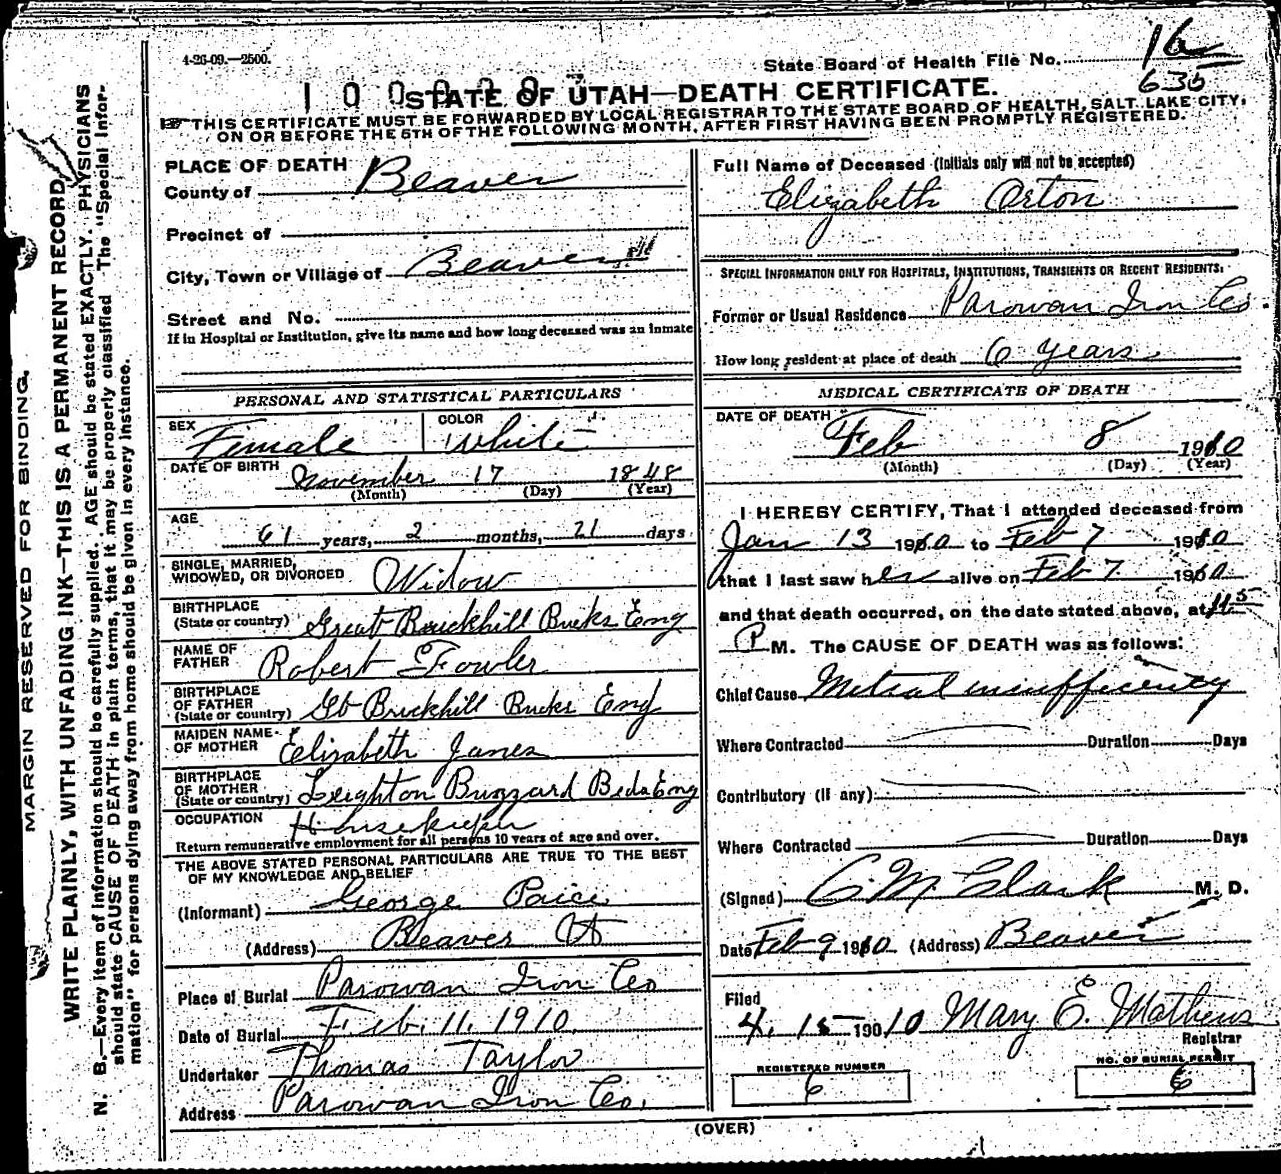 4-26-09.—2500.
State Board of Health File No. 16
635
1000
STATE OF UTAH—DEATH CERTIFICATE.
THIS CERTIFICATE MUST BE FORWARDED BY LOCAL REGISTRAR TO THE STATE BOARD OF HEALTH, SALT LAKE CITY,
ON OR BEFORE THE 5TH OF THE FOLLOWING MONTH, AFTER FIRST HAVING BEEN PROMPTLY REGISTERED.
MARGIN RESERVED FOR BINDING.
WRITE PLAINLY, WITH UNFADING INK—THIS IS A PERMANENT RECORD
N. B.—Every item of information should be carefully supplied. AGE should be stated EXACTLY. PHYSICIANS
should state CAUSE OF DEATH in plain terms, that it may be properly classified. The "Special Infor-
mation" for persons dying away from home should be given in every instance.
PLACE OF DEATH
County of Beaver
Precinct of
City, Town or Village of Beaver
Street and No.
If in Hospital or Institution, give its name and how long deceased was an inmate
PERSONAL AND STATISTICAL PARTICULARS
SEX Female COLOR White
DATE OF BIRTH November 17 1848
(Month) (Day) (Year)
AGE
61 years, 2 months, 21 days
SINGLE, MARRIED,
WIDOWED, OR DIVORCED Widow
BIRTHPLACE
(State or country) Great Brickhill Bucks Eng
NAME OF
FATHER Robert Fowler
BIRTHPLACE
OF FATHER
(State or country) Gt Brickhill Bucks Eng
MAIDEN NAME
OF MOTHER Elizabeth Janes
BIRTHPLACE
OF MOTHER
(State or country) Leighton Buzzard Beds Eng
OCCUPATION Housekeeper
Return remunerative employment for all persons 10 years of age and over.
THE ABOVE STATED PERSONAL PARTICULARS ARE TRUE TO THE BEST
OF MY KNOWLEDGE AND BELIEF
(Informant) George Paice
(Address) Beaver Ut
Place of Burial Parowan Iron Co
Date of Burial Feb. 11. 1910.
Undertaker Thomas Taylor
Address Parowan Iron Co.
Full Name of Deceased (Initials only will not be accepted)
Elizabeth Orton
SPECIAL INFORMATION ONLY FOR HOSPITALS, INSTITUTIONS, TRANSIENTS OR RECENT RESIDENTS:
Former or Usual Residence Parowan Iron Co.
How long resident at place of death 6 years
MEDICAL CERTIFICATE OF DEATH
DATE OF DEATH
Feb 8 1910
(Month) (Day) (Year)
I HEREBY CERTIFY, That I attended deceased from
Jan 13 1910 to Feb 7 1910
that I last saw her alive on Feb 7 1910
and that death occurred, on the date stated above, at
P M. The CAUSE OF DEATH was as follows:
Chief Cause Mitral insufficiency
Where Contracted Duration Days
Contributory (if any)
Where Contracted Duration Days
(Signed) C. M. Clark M. D.
Date Feb 9 1910 (Address) Beaver
Filed
4. 15 1910 Mary E. Mathews
Registrar
REGISTERED NUMBER
6
NO. OF BURIAL PERMIT
6
(OVER)